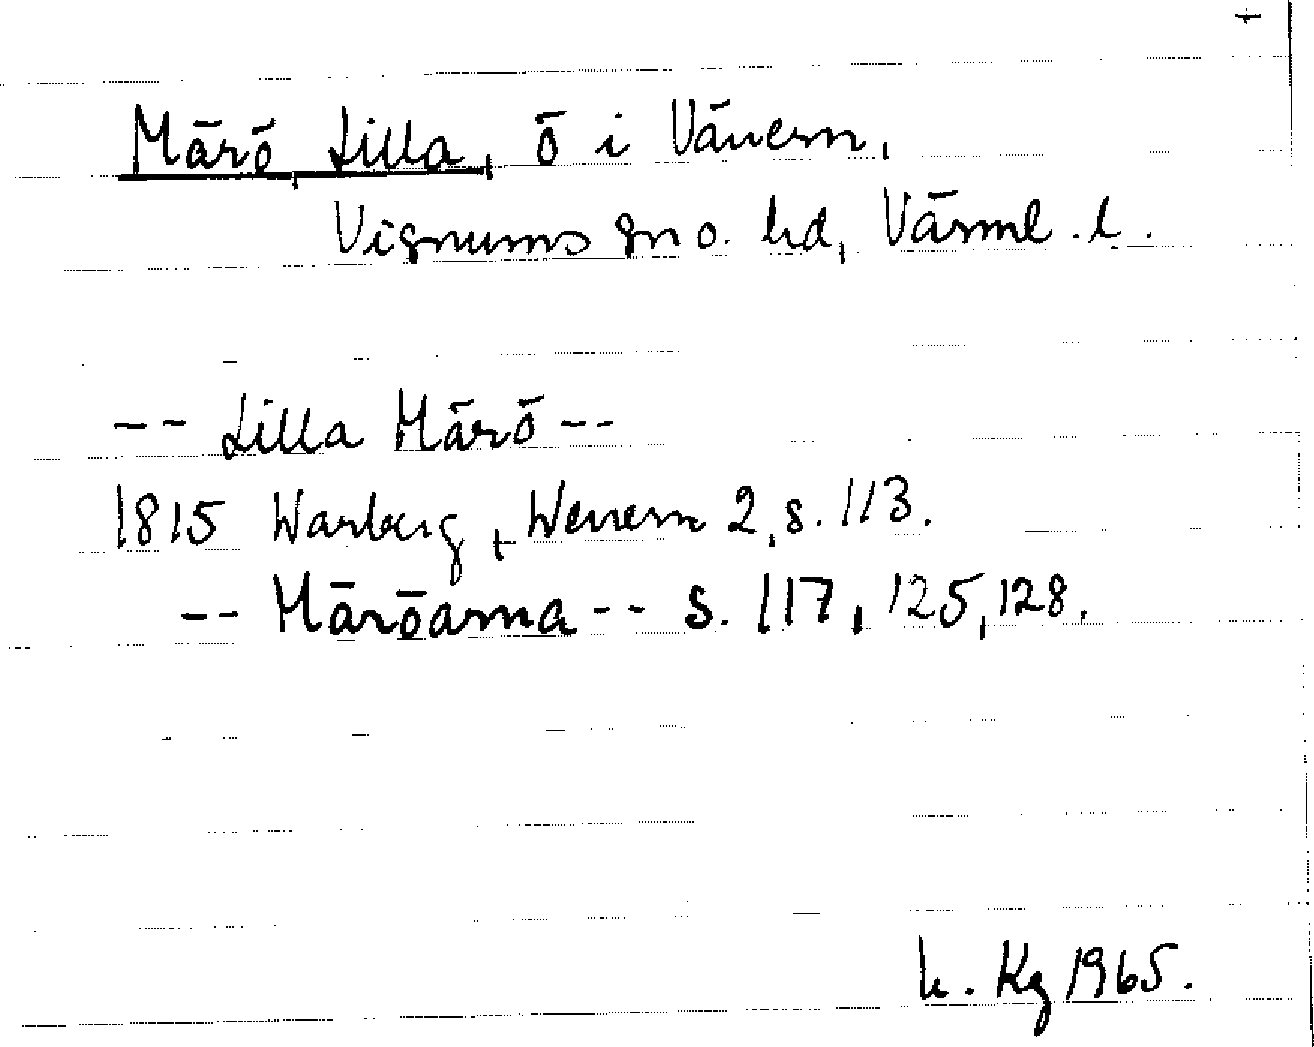 Märö, Lilla, ö i Vänern,
Visnums sn o. hd, Värml. l.
-- Lilla Märö --
1815 Warberg, Wenern 2, s. 113.
-- Märöarna -- s. 117, 125, 128.
h. Kg 1965.